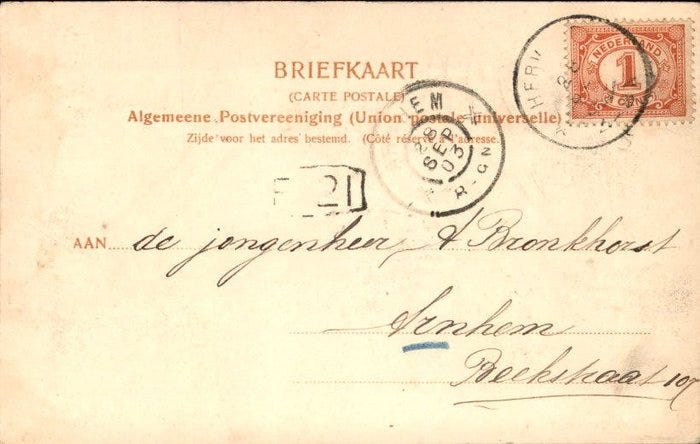 BRIEFKAART
(CARTE POSTALE)
Algemeene Postvereeniging (Union postale universelle)
Zijde voor het adres bestemd. (Côté réservé à l'adresse.
NEDERLAND
1
EM
28
SEP
03
21
AAN de jongenheer A Bronkhorst
Arnhem
Beekstraat 107